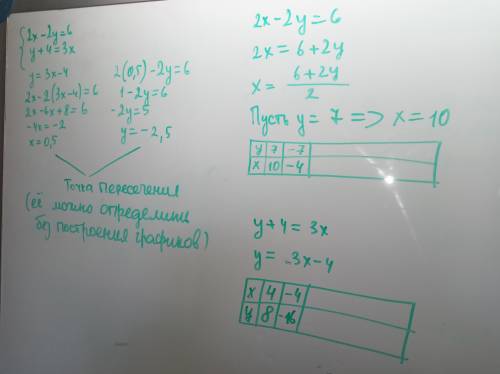 {2x-2y=6
y+4=3x
y=3x-4
2x-2(3x-4)=6
2x-6x+8=6
-4x=-2
x=0,5
2(0,5)-2y=6
1-2y=6
-2y=5
y=-2,5
Точка пересечения
(её можно определить
без построения графиков)
2x-2y=6
2x=6+2y
x= 6+2y
2
Пусть y=7=>x=10
y 7 -7
x 10 -4
y+4=3x
y=3x-4
x 4 -4
y 8 -16